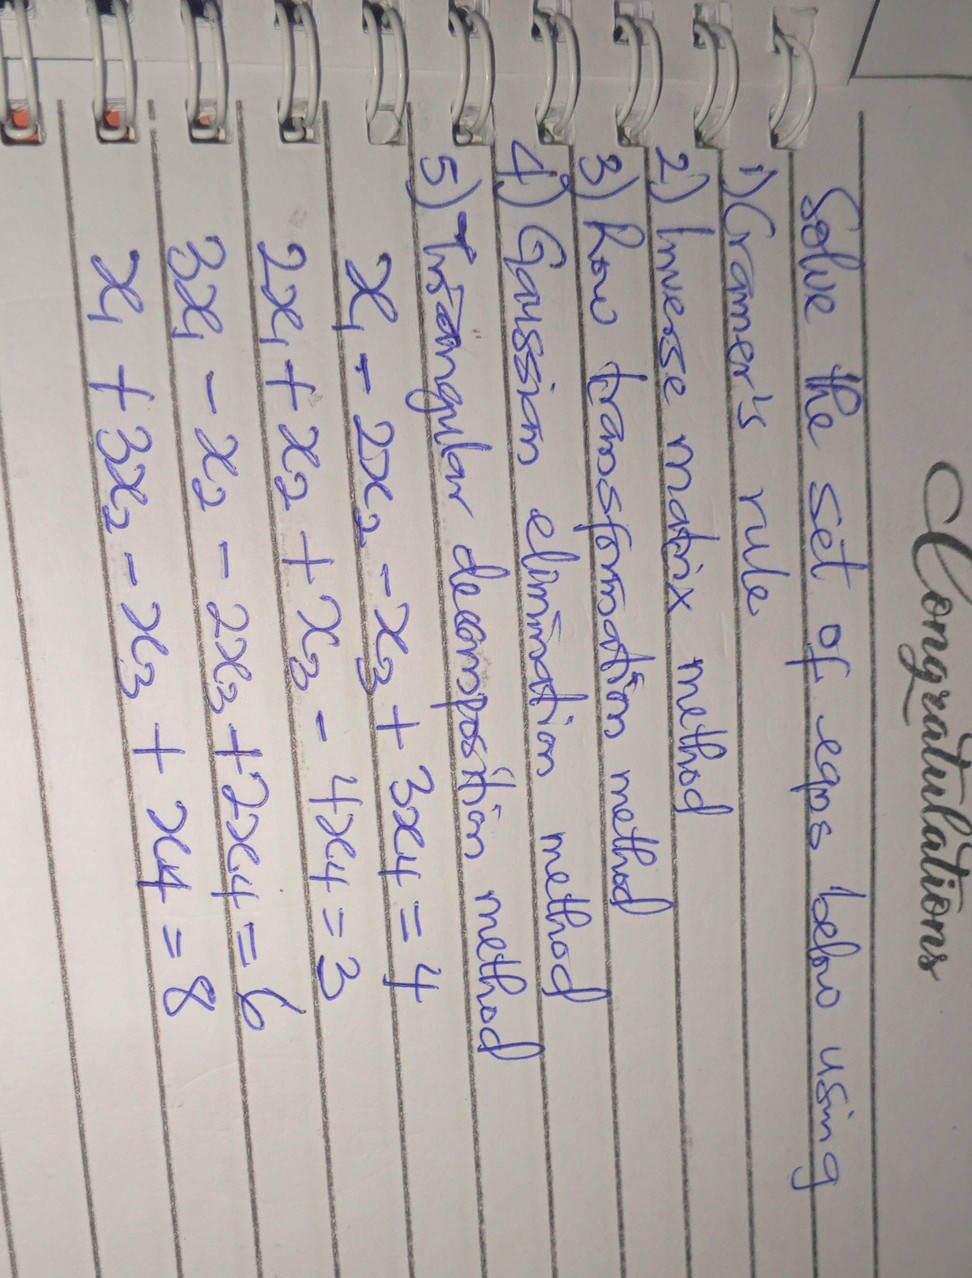 Congratulations
Solve the set of eqns below using
1) Cramer's rule
2) Inverse matrix method
3) Row transformation method
4) Gaussian elimination method
5) Triangular decomposition method
x₁ - 2x₂ - x₃ + 3x₄ = 4
2x₁ + x₂ + x₃ - 4x₄ = 3
3x₁ - x₂ - 2x₃ + 2x₄ = 6
x₁ + 3x₂ - x₃ + x₄ = 8